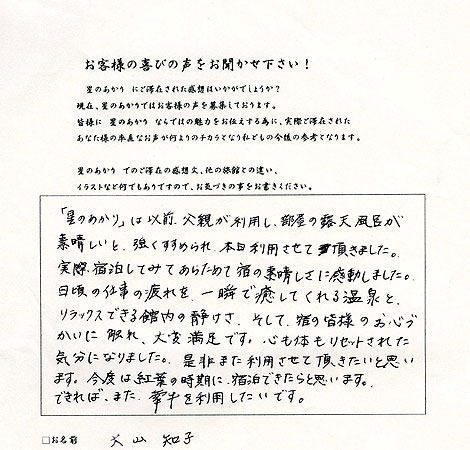 お客様の喜びの声をお聞かせ下さい！
星のあかり にご滞在された感想はいかがでしょうか？
現在、星のあかりではお客様の声を募集しております。
皆様に 星のあかり ならではの魅力をお伝えする為に、実際ご滞在された
あなた様の率直なお声が何よりのチカラとなり私どもの今後の参考となります。
星のあかり でのご滞在の感想文、他の旅館との違い、
イラストなど何でもありですので、お気づきの事をお書きください。
「星のあかり」は以前、父親が利用し、部屋の露天風呂が
素晴しいと、強くすすめられ、本日利用させて頂きました。
実際、宿泊してみてあらためて宿の素晴しさに感動しました。
日頃の仕事の疲れを、一瞬で癒してくれる温泉と、
リラックスできる館内の静けさ、そして、宿の皆様のお心づ
かいに触れ、大変満足です。心も体もリセットされた
気分になりました。是非また利用させて頂きたいと思い
ます。今度は紅葉の時期に、宿泊できたらと思います。
できれば、また、牽牛を利用したいです。
□お名前 犬山 知子